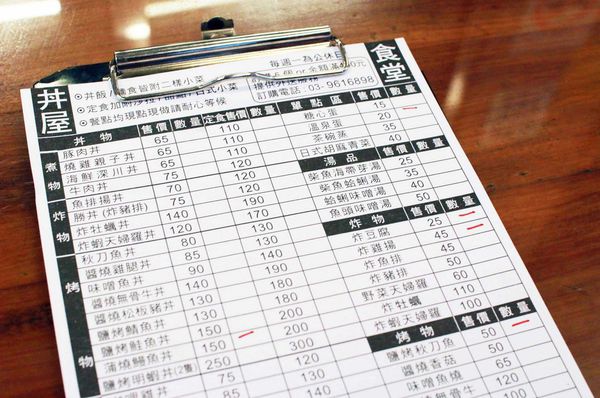 丼屋
食堂
◎丼飯/定食皆附二樣小菜 每週一為公休日
◎定食加附沙拉/甜點/日式小菜 提供外送服務
◎餐點均現點現做請耐心等候 訂購電話：03-9616898
丼物 售價 數量 定食售價 數量
煮物
豚肉丼 65 110
燒雞親子丼 65 110
海鮮深川丼 75 120
牛肉丼 70 120
炸物
魚排揚丼 75 120
勝丼(炸豬排) 140 190
炸牡蠣丼 120 170
炸蝦天婦羅丼 120 170
烤物
秋刀魚丼 85
醬燒雞腿丼 90
味噌魚丼 140 190
醬燒無骨牛丼 130 180
醬燒松板豬丼 130 180
鹽烤鯖魚丼 150 200
鹽烤鮭魚丼 150 200
蒲燒鰻魚丼 250 300
鹽烤明蝦丼(2隻
單點區 售價 數量
糖心蛋 15
溫泉蛋 20
茶碗蒸 35
日式胡麻青菜 40
湯品
柴魚海帶芽湯 25
柴魚蛤蜊湯 35
蛤蜊味噌湯 35
魚頭味噌湯 50
炸物 售價 數量
炸豆腐 25
炸雞揚 45
炸魚排
炸豬排
野菜天婦羅
炸牡蠣
炸蝦天婦羅 100
烤物 售價 數量
鹽烤秋刀魚 50
醬燒香菇 50
味噌魚燒 100